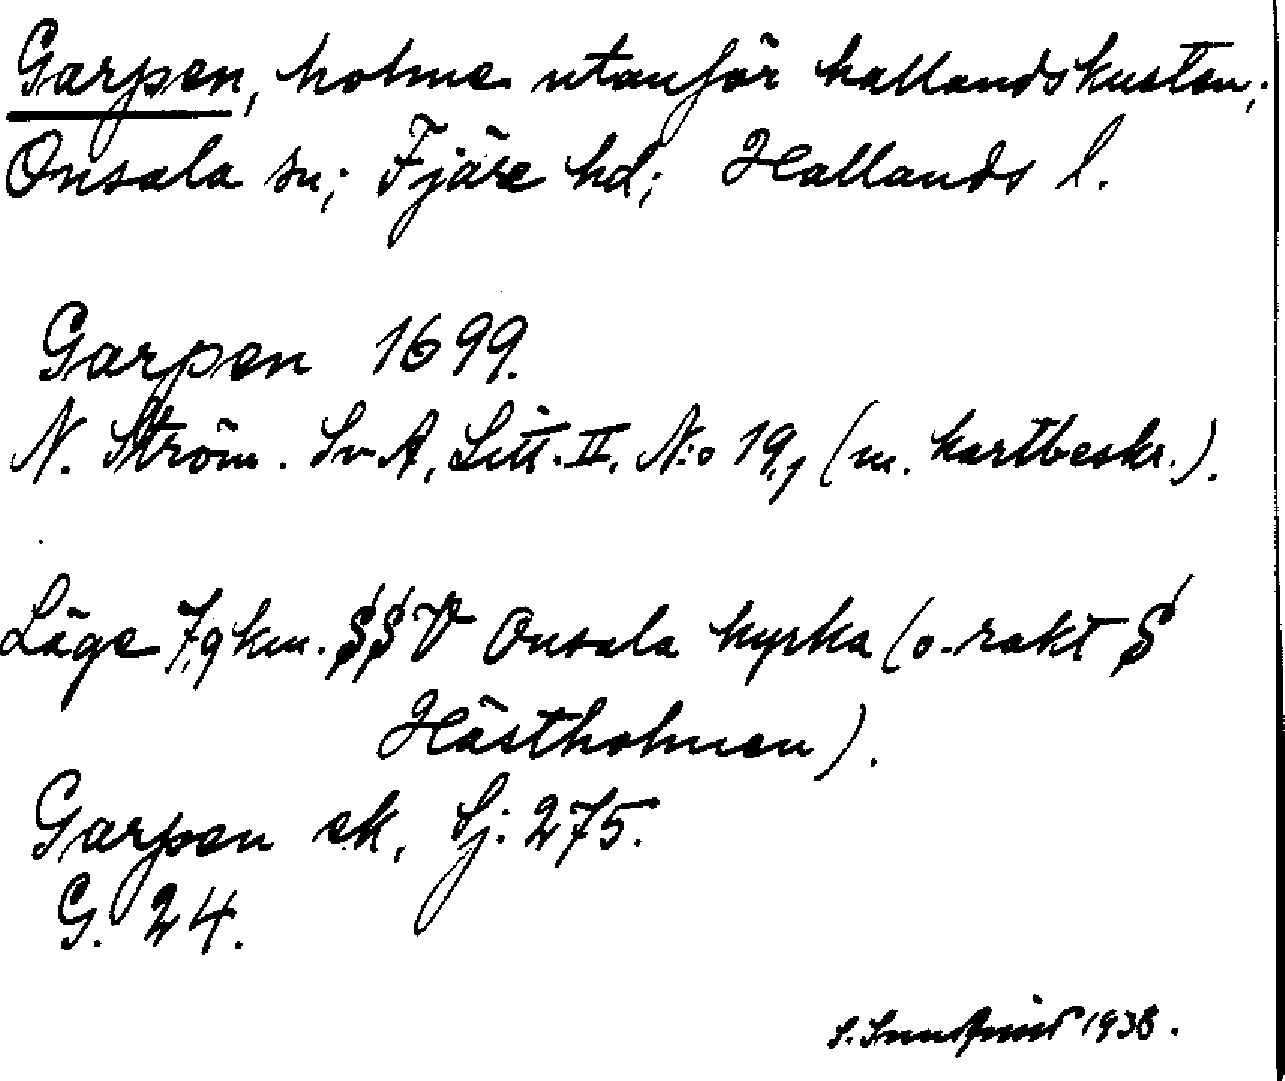 Garpen, holme utanför hallandskusten;
Onsala sn; Fjäre hd; Hallands l.
Garpen 1699.
N. Ström. SvA, Litt. II. N:o 19,1 (m. kartbeskr.).
Läge 7,9 km. SSV Onsala kyrka (o. rakt S
Hästholmen).
Garpen ek, Sj. 275.
G. 24.
S. Sundqvist 1938.